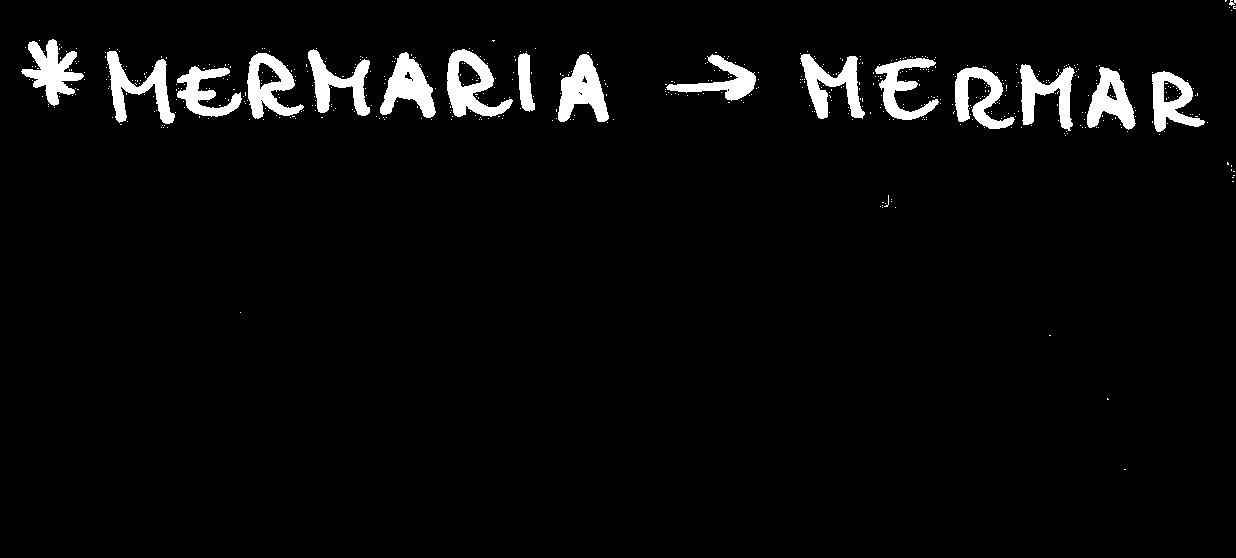 *MERMARIA → MERMAR